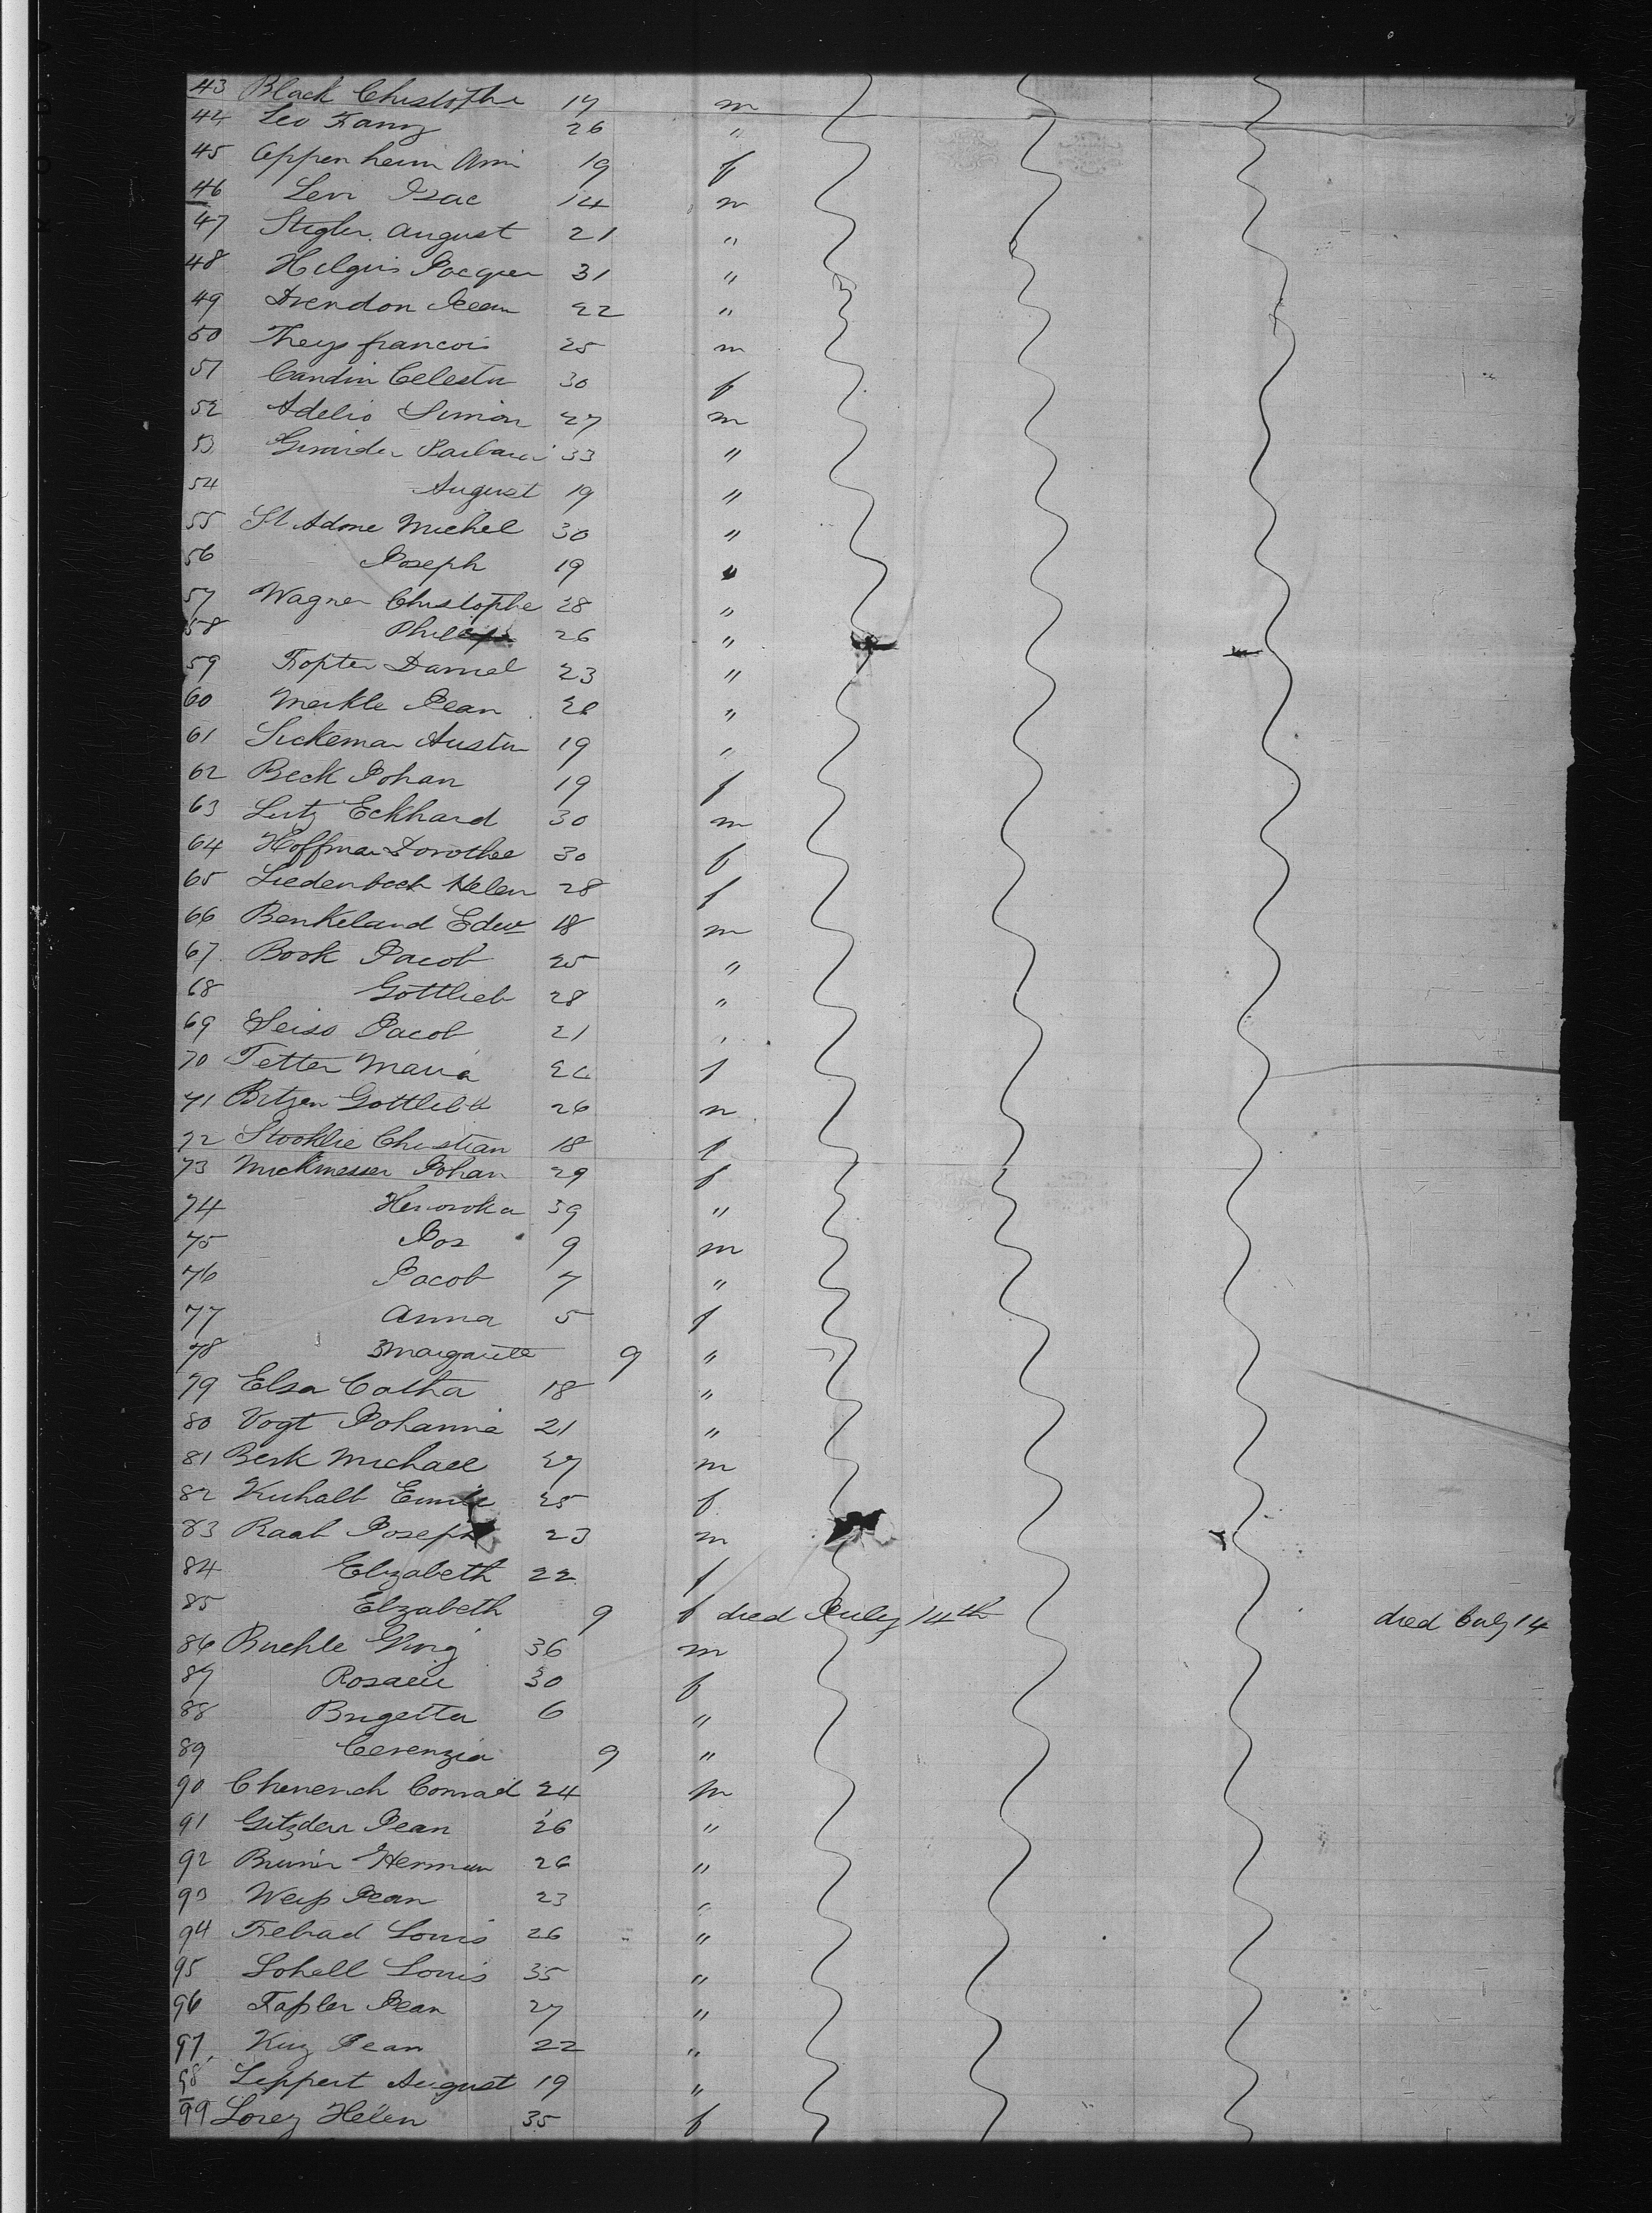 43 Black Christophe 19 m
44 Leo Fanny 26 "
45 Oppenheim Ami 19 f
46 Levi Isac 14 m
47 Stigler August 21 "
48 31 "
49 Drendon Jean 22 "
50 Theys francois 25 m
51 Candin Celestin 30 f
52 Adelio Simon 27 m
53 33 "
54 August 19 "
55 St Adone Michel 30 "
56 Joseph 19 "
57 Wagner Christophe 28 "
58 26 "
59 Daniel 23 "
60 Merkle Jean "
61 Sickeman Austin 19 "
62 Beck Johan 19 f
63 Lutz Eckhard 30 m
64 Hoffman Dorothee 30 f
65 Liedenbach Helen 28 f
66 Benkeland Edw 18 m
67 Book Jacob 25 "
68 Gottlieb 28 "
69 Seiss Jacob 21 "
70 Tetter Maria f
71 Bitzen 26 m
72 Stooklie Christian 18 f
73 Muckmesser Johan 29 f
74 39 "
75 Jos 9 m
76 Jacob 7 "
77 Anna 5 f
78 Margarite 9 "
79 Elsa Catha 18 "
80 Vogt Johanna 21 "
81 Berk Michael 27 m
82 Kuhalt Emile 25 f
83 Raab Joseph 23 m
84 Elizabeth 22 f
85 Elzabeth 9 f died July 14th died July 14
86 Buehle 36 m
87 30 f
88 Brigetta 6 "
89 Cerenzia 9 "
90 Chenench Conrad 24 m
91 Gitzder Jean 26 "
92 Herman 26 "
93 Jean 23 "
94 Trebad Louis 26 "
95 Lohell Louis 35 "
96 Jean 27 "
97 Kuz Jean 22 "
98 Leppert August 19 "
99 Lorez Helen 35 f